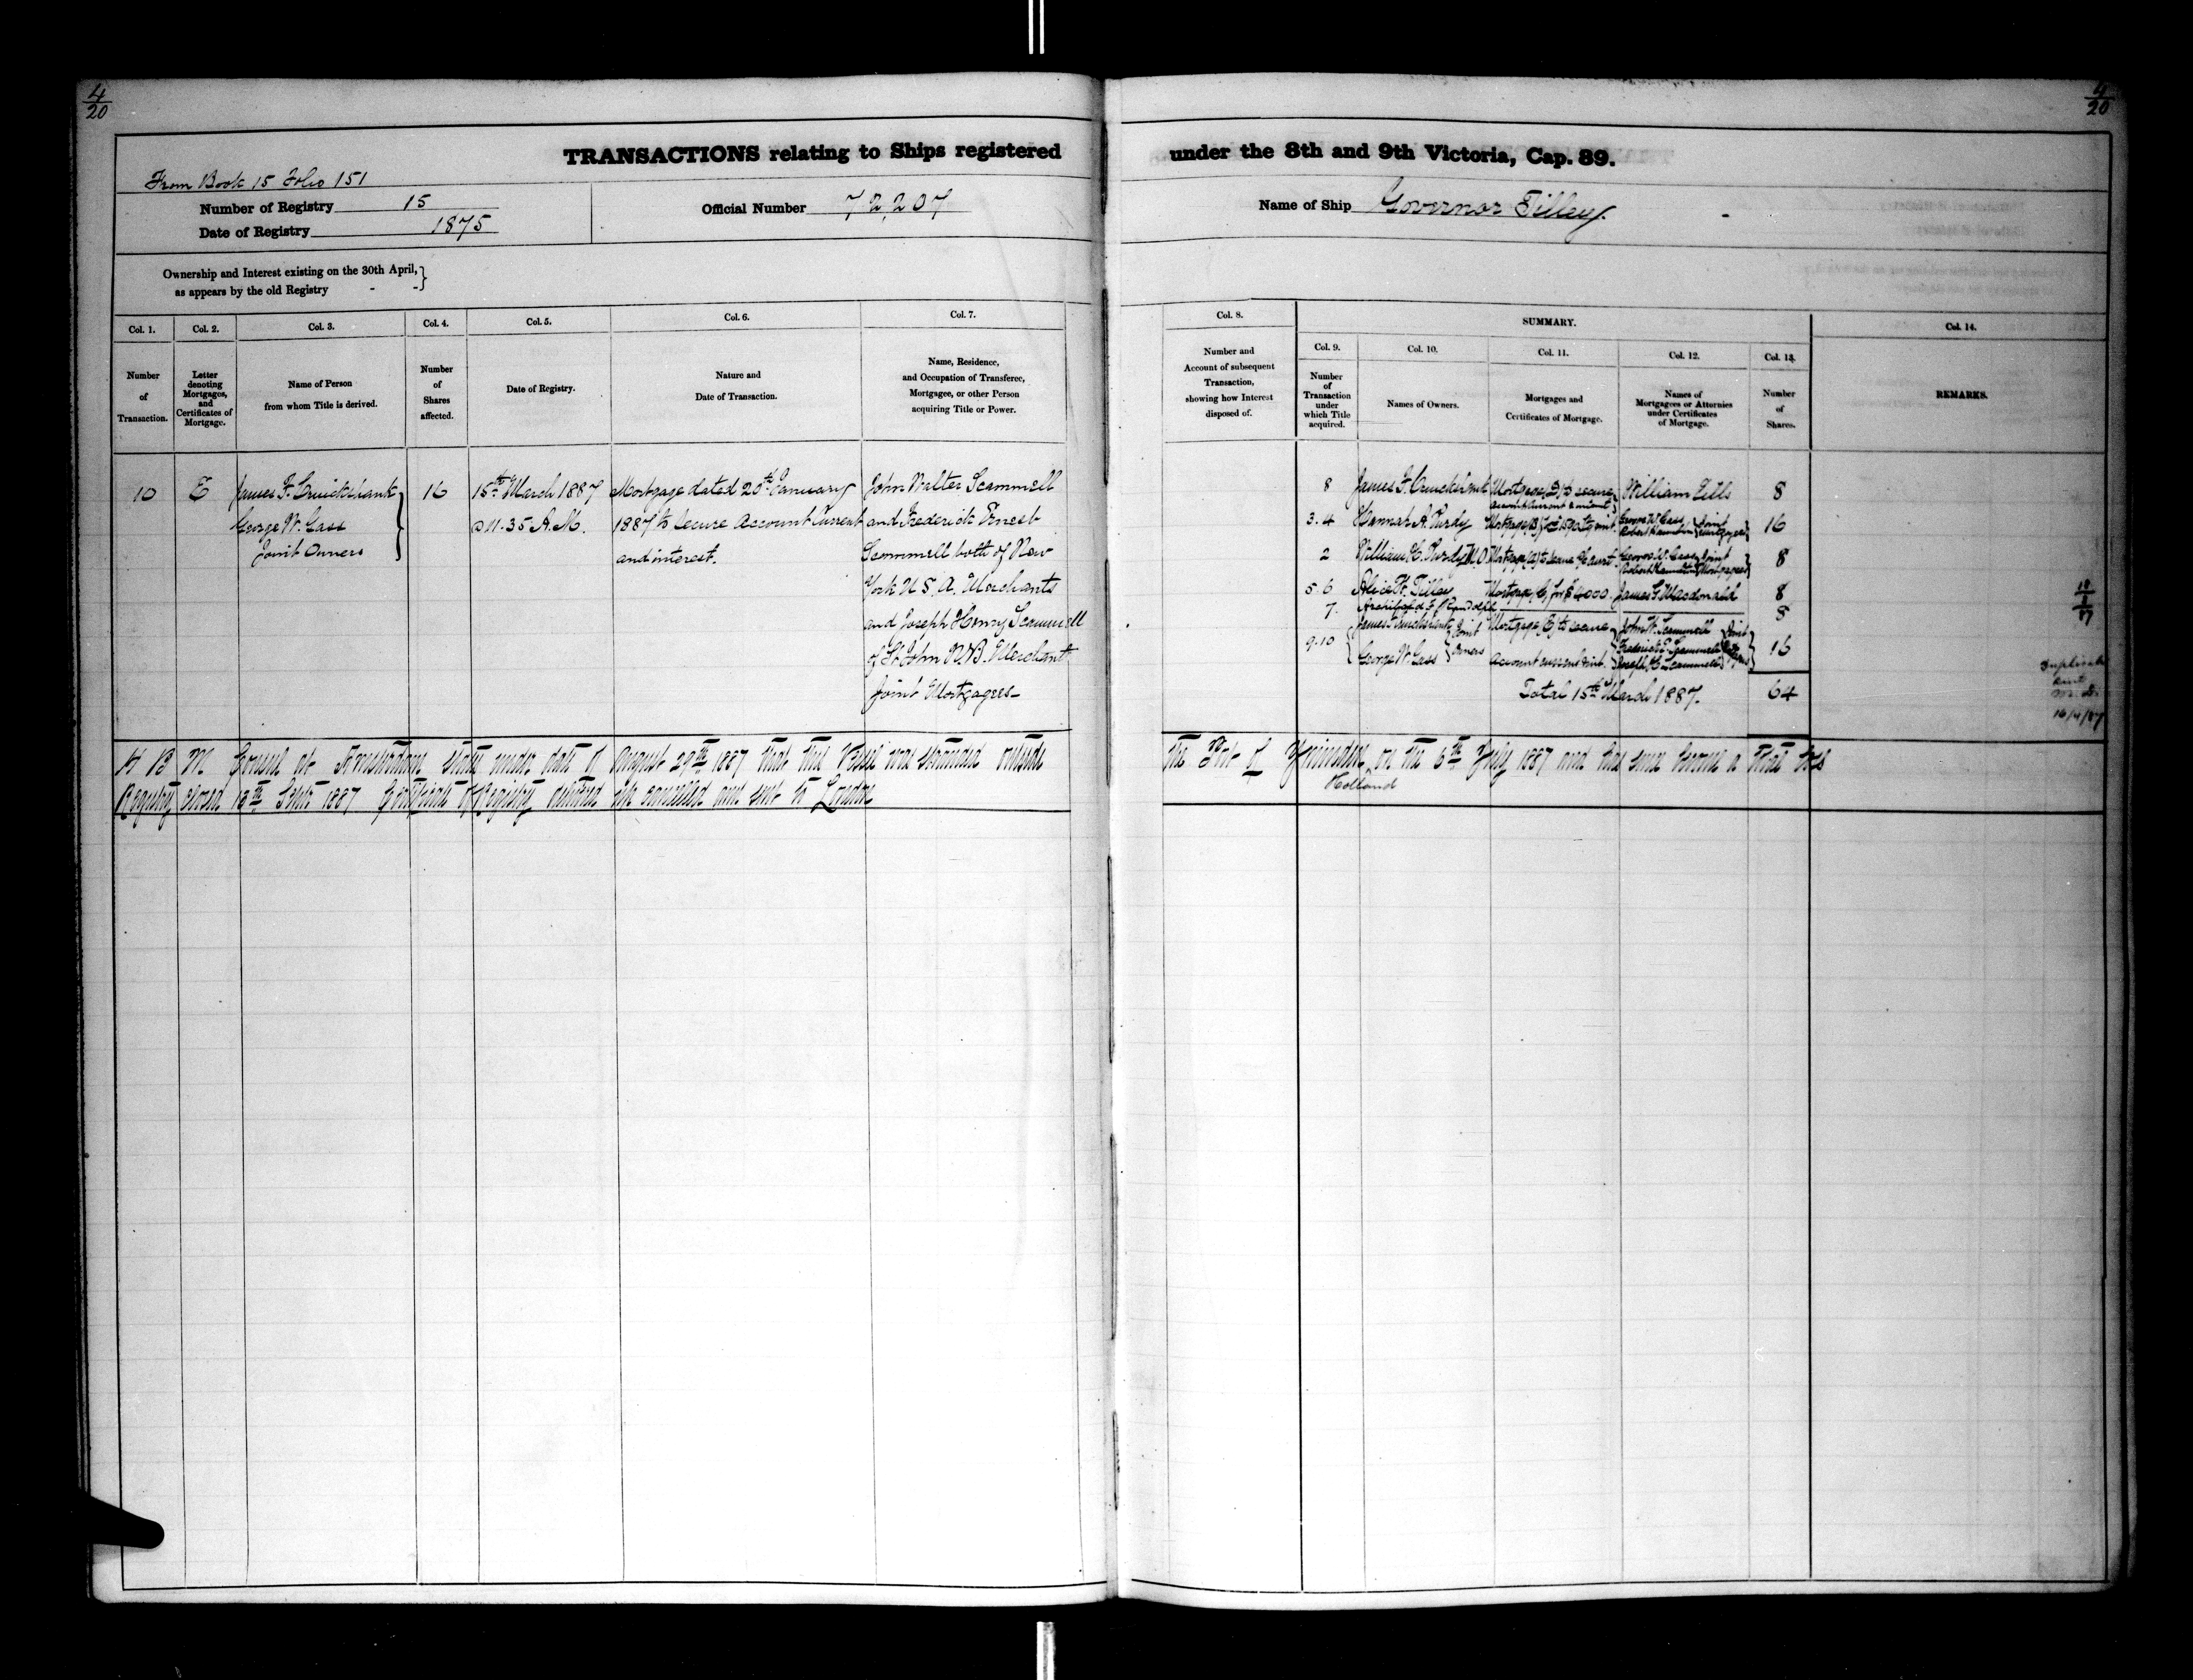 4/20
4/20
TRANSACTIONS relating to Ships registered under the 8th and 9th Victoria, Cap. 89.
From Book 15 Folio 151
Number of Registry 15
Date of Registry 1875
Official Number 72,207
Name of Ship Governor Tilley.
Ownership and Interest existing on the 30th April, }
as appears by the old Registry - -
Col. 1.
Number
of
Transaction.
Col. 2.
Letter
denoting
Mortgages,
and
Certificates of
Mortgage.
Col. 3.
Name of Person
from whom Title is derived.
Col. 4.
Number
of
Shares
affected.
Col. 5.
Date of Registry.
Col. 6.
Nature and
Date of Transaction.
Col. 7.
Name, Residence,
and Occupation of Transferee,
Mortgagee, or other Person
acquiring Title or Power.
Col. 8.
Number and
Account of subsequent
Transaction,
showing how Interest
disposed of.
SUMMARY.
Col. 9.
Number
of
Transaction
under
which Title
acquired.
Col. 10.
Names of Owners.
Col. 11.
Mortgages and
Certificates of Mortgage.
Col. 12.
Names of
Mortgagees or Attornies
under Certificates
of Mortgage.
Col. 13.
Number
of
Shares.
Col. 14.
REMARKS.
10
E
James F. Cruickshank
George W. Gass
Joint Owners
16
15th March 1887
@ 11.35 A.M.
Mortgage dated 20th January
1887 to secure Account Current
and interest.
John Walter Scammell
and Frederick Ernest
Scammell both of New
York U.S.A. Merchants
and Joseph Henry Scammell
of St John N.B. Merchant
Joint Mortgagees
8 James F. Cruickshank Mortgage (D) to secure account current & interest William 8
3.4 Hannah A. Purdy Mortgage (B) George W. Gass Robert Joint Mortgagees 16
2 William H. Purdy Mortgage (A) to secure George W. Gass Robert Joint Mortgagees 8
5.6 Alice Tilley Mortgage, C, for $4000. James S. Macdonald 8
7. Archibald F. Randolph 8
9.10 James F. Cruickshank George W. Gass Joint Owners Mortgage (E) to secure Account current & int. John W. Scammell Frederick E. Scammell Joseph H. Scammell Joint 16
Total 15th March 1887. 64
Duplicate
sent
16/4/87
H B M Consul at Amsterdam states under date of August 29th 1887 that this Vessel was stranded outside the Port of Ymuiden on the 6th July 1887 and has since become a total loss
Holland
Registry closed 13th Septr 1887 Certificate of Registry cancelled and sent to London